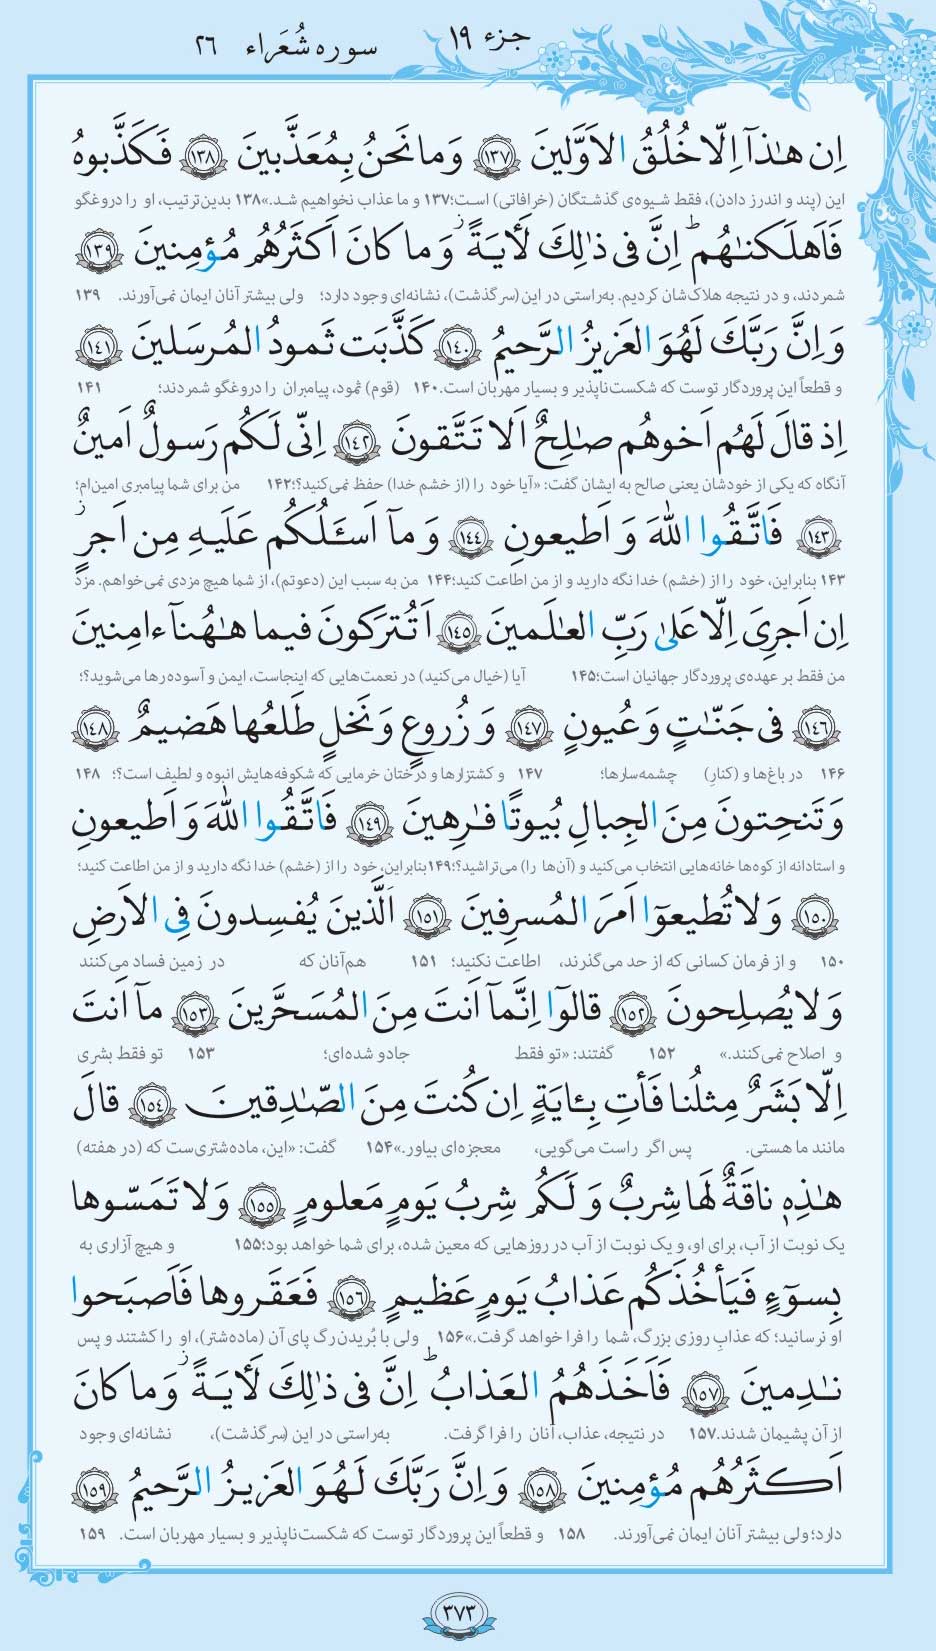 جزء ۱۹ سوره شُعَراء ۲۶
اِن هٰذآ اِلّا خُلُقُ الاَوَّلينَ ﴿۱۳۷﴾ وَ ما نَحنُ بِمُعَذَّبينَ ﴿۱۳۸﴾ فَكَذَّبوهُ
این (پند و اندرز دادن)، فقط شیوه‌ی گذشتگان (خرافاتی) است؛۱۳۷ و ما عذاب نخواهیم شد.»۱۳۸ بدین‌ترتیب، او را دروغگو
فَاَهلَكنٰهُم ۗ اِنَّ فى ذٰلِكَ لَأٰيَةً ۖ وَ ما كانَ اَكثَرُهُم مُؤمِنينَ ﴿۱۳۹﴾
شمردند، و در نتیجه هلاک‌شان کردیم. به‌راستی در این (سرگذشت)، نشانه‌ای وجود دارد؛ ولی بیشتر آنان ایمان نمی‌آورند. ۱۳۹
وَ اِنَّ رَبَّكَ لَهُوَ العَزيزُ الرَّحيمُ ﴿۱۴۰﴾ كَذَّبَت ثَمودُ المُرسَلينَ ﴿۱۴۱﴾
و قطعاً این پروردگار توست که شکست‌ناپذیر و بسیار مهربان است.۱۴۰ (قوم) ثمود، پیامبران را دروغگو شمردند؛ ۱۴۱
اِذ قالَ لَهُم اَخوهُم صٰلِحٌ اَلا تَتَّقونَ ﴿۱۴۲﴾ اِنّى لَكُم رَسولٌ اَمينٌ
آنگاه که یکی از خودشان یعنی صالح به ایشان گفت: «آیا خود را (از خشم خدا) حفظ نمی‌کنید؟؛۱۴۲ من برای شما پیامبری امین‌ام؛
﴿۱۴۳﴾ فَاتَّقُوا اللّٰهَ وَ اَطيعونِ ﴿۱۴۴﴾ وَ مآ اَسـَٔلُكُم عَلَيهِ مِن اَجرٍ ۖ
۱۴۳ بنابراین، خود را از (خشم) خدا نگه دارید و از من اطاعت کنید؛۱۴۴ من به سبب این (دعوتم)، از شما هیچ مزدی نمی‌خواهم. مزد
اِن اَجرِىَ اِلّا عَلىٰ رَبِّ العٰلَمينَ ﴿۱۴۵﴾ اَتُترَكونَ فيما هٰهُنآ ءامِنينَ
من فقط بر عهده‌ی پروردگار جهانیان است؛۱۴۵ آیا (خیال می‌کنید) در نعمت‌هایی که اینجاست، ایمن و آسوده رها می‌شوید؟؛
﴿۱۴۶﴾ فى جَنّٰتٍ وَ عُيونٍ ﴿۱۴۷﴾ وَ زُروعٍ وَ نَخلٍ طَلعُها هَضيمٌ ﴿۱۴۸﴾
۱۴۶ در باغ‌ها و (کنارِ) چشمه‌سارها؛ ۱۴۷ و کشتزارها و درختان خرمایی که شکوفه‌هایش انبوه و لطیف است؟؛ ۱۴۸
وَ تَنحِتونَ مِنَ الجِبالِ بُيوتًا فٰرِهينَ ﴿۱۴۹﴾ فَاتَّقُوا اللّٰهَ وَ اَطيعونِ
و استادانه از کوه‌ها خانه‌هایی انتخاب می‌کنید و (آن‌ها را) می‌تراشید؟؛۱۴۹بنابراین، خود را از (خشم) خدا نگه دارید و از من اطاعت کنید؛
﴿۱۵۰﴾ وَ لا تُطيعوٓا اَمرَ المُسرِفينَ ﴿۱۵۱﴾ اَلَّذينَ يُفسِدونَ فِى الاَرضِ
۱۵۰ و از فرمان کسانی که از حد می‌گذرند، اطاعت نکنید؛ ۱۵۱ هم‌آنان که در زمین فساد می‌کنند
وَ لا يُصلِحونَ ﴿۱۵۲﴾ قالوٓا اِنَّمآ اَنتَ مِنَ المُسَحَّرينَ ﴿۱۵۳﴾ مآ اَنتَ
و اصلاح نمی‌کنند.» ۱۵۲ گفتند: «تو فقط جادو شده‌ای؛ ۱۵۳ تو فقط بشری
اِلّا بَشَرٌ مِثلُنا فَأتِ بِـٔايَةٍ اِن كُنتَ مِنَ الصّٰدِقينَ ﴿۱۵۴﴾ قالَ
مانند ما هستی. پس اگر راست می‌گویی، معجزه‌ای بیاور.»۱۵۴ گفت: «این، ماده‌شتری‌ست که (در هفته)
هٰذِهٖ ناقَةٌ لَها شِربٌ وَ لَكُم شِربُ يَومٍ مَعلومٍ ﴿۱۵۵﴾ وَ لا تَمَسّوها
یک نوبت از آب، برای او، و یک نوبت از آب در روزهایی که معین شده، برای شما خواهد بود؛۱۵۵ و هیچ آزاری به
بِسوٓءٍ فَيَأخُذَكُم عَذابُ يَومٍ عَظيمٍ ﴿۱۵۶﴾ فَعَقَروها فَاَصبَحوا
او نرسانید؛ که عذابِ روزی بزرگ، شما را فرا خواهد گرفت.»۱۵۶ ولی با بُریدن رگ پای آن (ماده‌شتر)، او را کشتند و پس
نٰدِمينَ ﴿۱۵۷﴾ فَاَخَذَهُمُ العَذابُ ۗ اِنَّ فى ذٰلِكَ لَأٰيَةً ۖ وَ ما كانَ
از آن پشیمان شدند.۱۵۷ در نتیجه، عذاب، آنان را فرا گرفت. به‌راستی در این (سرگذشت)، نشانه‌ای وجود
اَكثَرُهُم مُؤمِنينَ ﴿۱۵۸﴾ وَ اِنَّ رَبَّكَ لَهُوَ العَزيزُ الرَّحيمُ ﴿۱۵۹﴾
دارد؛ ولی بیشتر آنان ایمان نمی‌آورند. ۱۵۸ و قطعاً این پروردگار توست که شکست‌ناپذیر و بسیار مهربان است. ۱۵۹
۳۷۳